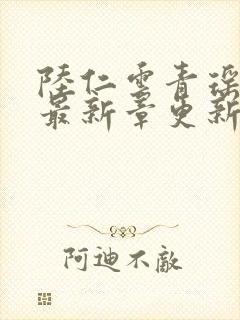 陸仁雲青瑶
最新章更新
阿迪不敵